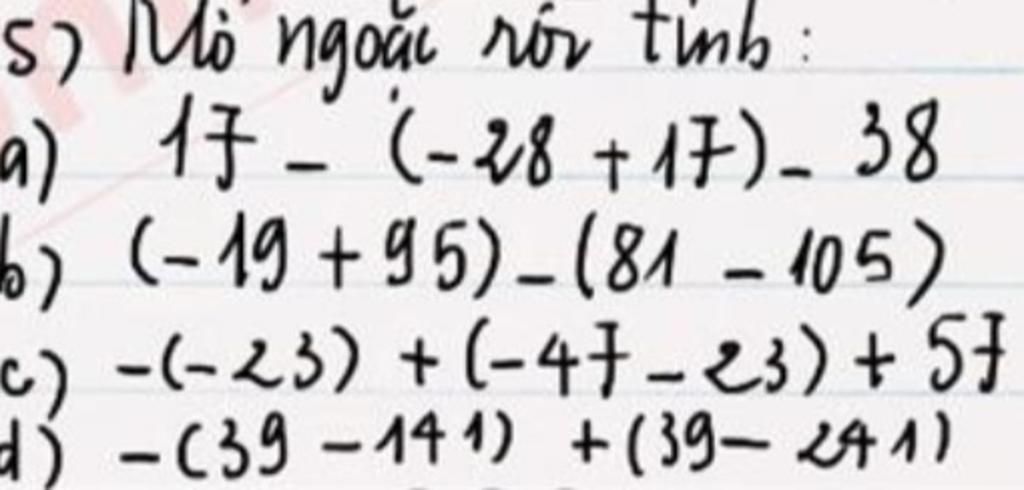 5) Mở ngoặc rồi tính:
a) 17 - (-28 + 17) - 38
b) (-19 + 95) - (81 - 105)
c) -(-23) + (-47 - 23) + 57
d) -(39 - 141) + (39 - 241)